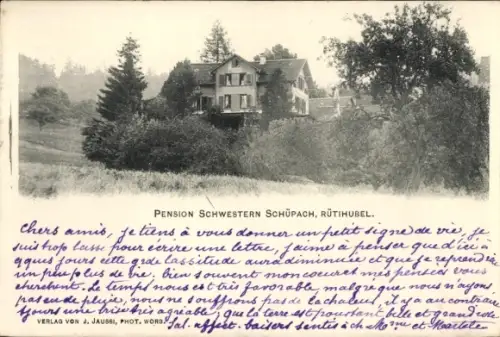 PENSION SCHWESTERN SCHÜPACH, RÜTIHUBEL.
Chers amis, je tiens à vous donner un petit signe de vie, je
suis trop lasse pour écrire une lettre, j'aime à penser que d'ici à
qques jours cette grde lassitude aura diminuée et que je reprendrai
un peu plus de vie. bien souvent mon coeur et mes pensées vous
cherchent. Le temps nous est très favorable, malgré que nous n'ayons
pas eu de pluie, nous ne souffrons pas de la chaleur, il y a au contraire
tjours une brise très agréable, que la terre est pourtant belle et grande
VERLAG VON J. JAUSSI, PHOT. WORB.
Sal. affect. baisers sentis à ch Mme et